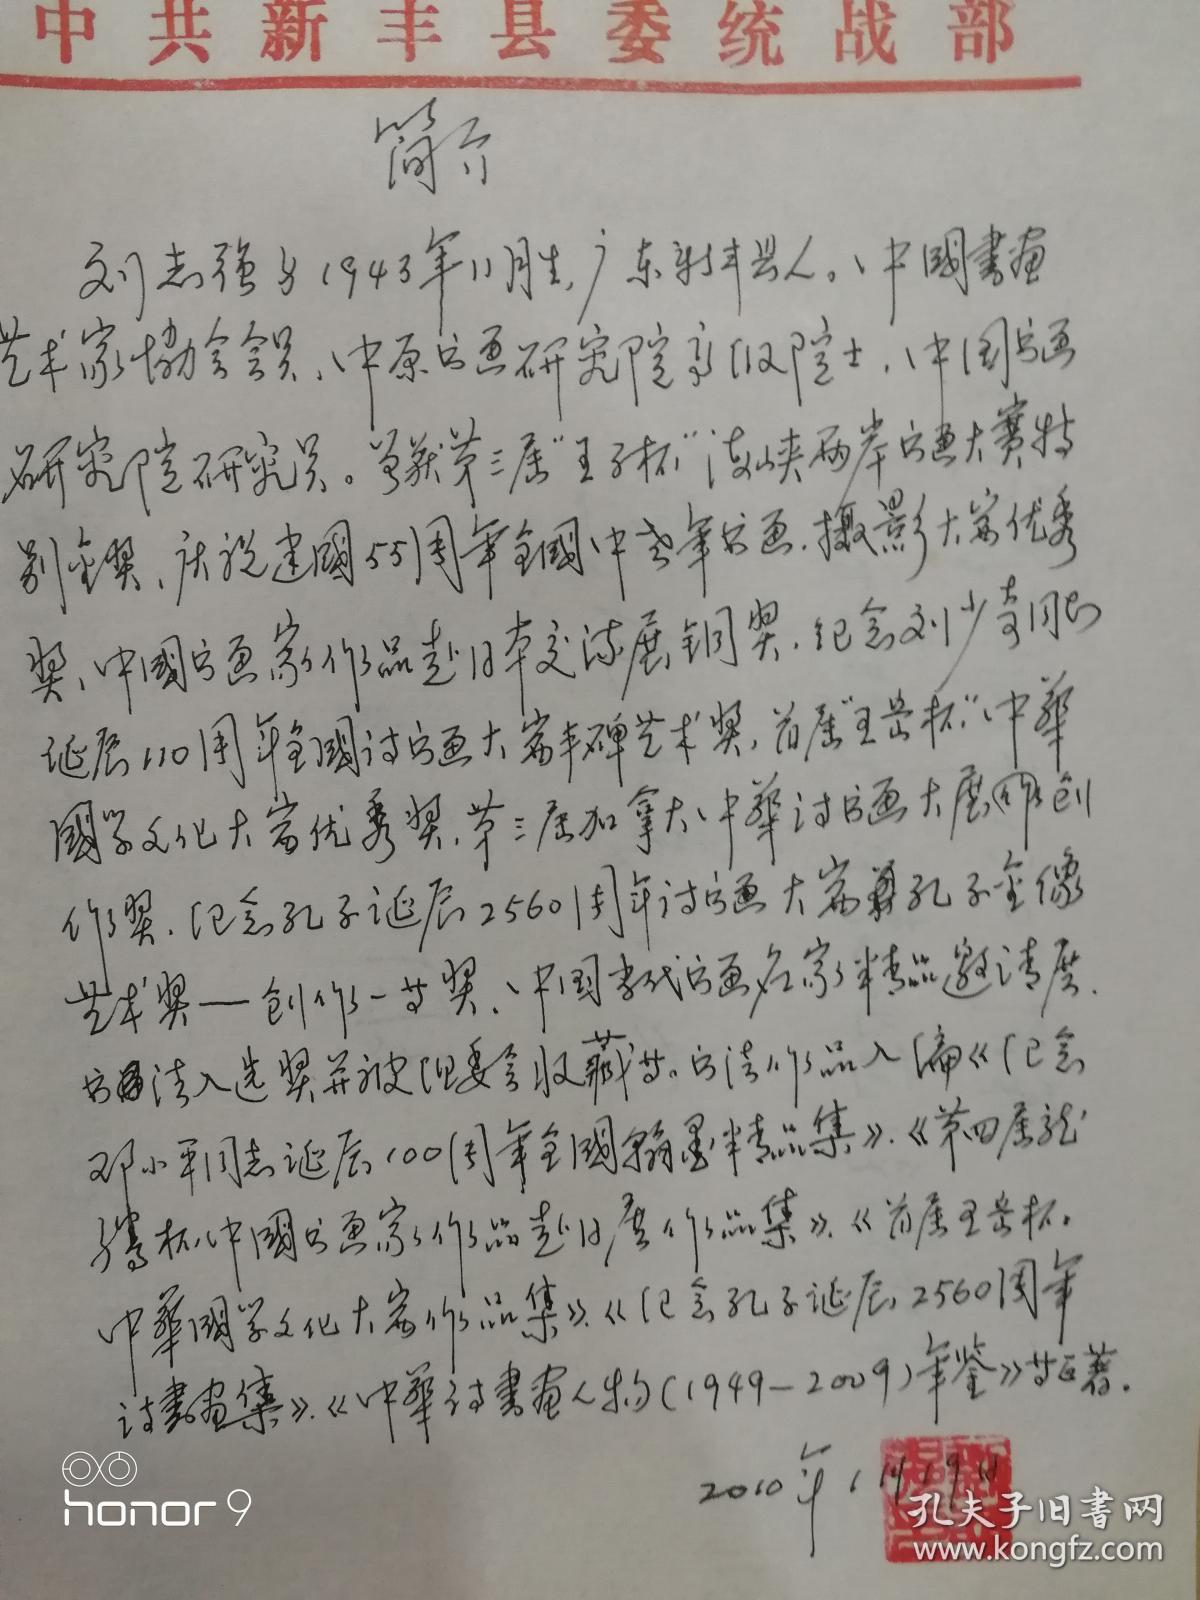 中共新丰县委统战部
简介
刘志强 1943年11月生,广东新丰县人。中國書画
艺术家协会会员、中原书画研究院高级院士、中国书画
研究院研究员。曾获第三届"王子杯"海峡两岸书画大赛特
别金奖、庆祝建國55周年全國中老年书画、摄影大赛优秀
奖、中國书画家作品赴日本交流展铜奖、纪念刘少奇同志
诞辰110周年全國诗书画大赛丰碑艺术奖、首届"王岳杯"中華
國学文化大赛优秀奖、第三届加拿大中華诗书画大展 创
作奖、纪念孔子诞辰2560周年诗书画大赛 孔子金像
艺术奖—创作一等奖、中国当代书画名家精品邀请展、
书法入选奖并被组委会收藏等。书法作品入编《纪念
邓小平同志诞辰100周年全國翰墨精品集》、《第四届龙
腾杯中國书画家作品赴日展作品集》、《首届王岳杯。
中華國学文化大赛作品集》、《纪念孔子诞辰2560周年
诗書画集》、《中華诗書画人物(1949—2009)年鉴》等巨著。
2010年1月19日
honor 9
孔夫子旧書网
www.kongfz.com